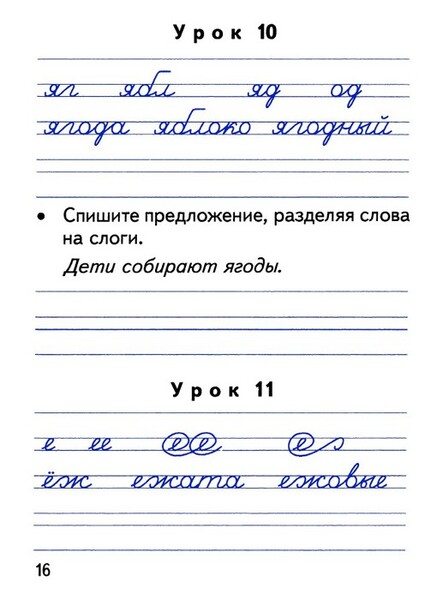 Урок 10
яг ябл яд од
ягода яблоко ягодный
• Спишите предложение, разделяя слова
на слоги.
Дети собирают ягоды.
Урок 11
е ее ее е
ёж ежата ежовые
16